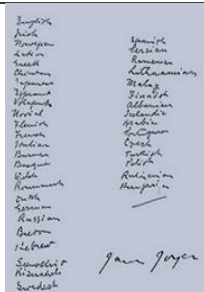 English
Irish
Norwegian
Latin
Greek
Chinese
Japanese
Esperanto
Volapuk
Novial
Flemish
French
Italian
Burmese
Basque
Welsh
Roumansh
Dutch
German
Russian
Breton
Hebrew
Sanskrit
Swedish
Spanish
Persian
Rumanian
Lithuanian
Malay
Finnish
Albanian
Icelandic
Arabic
Portuguese
Czech
Turkish
Polish
Ruthenian
Hungarian
James Joyce